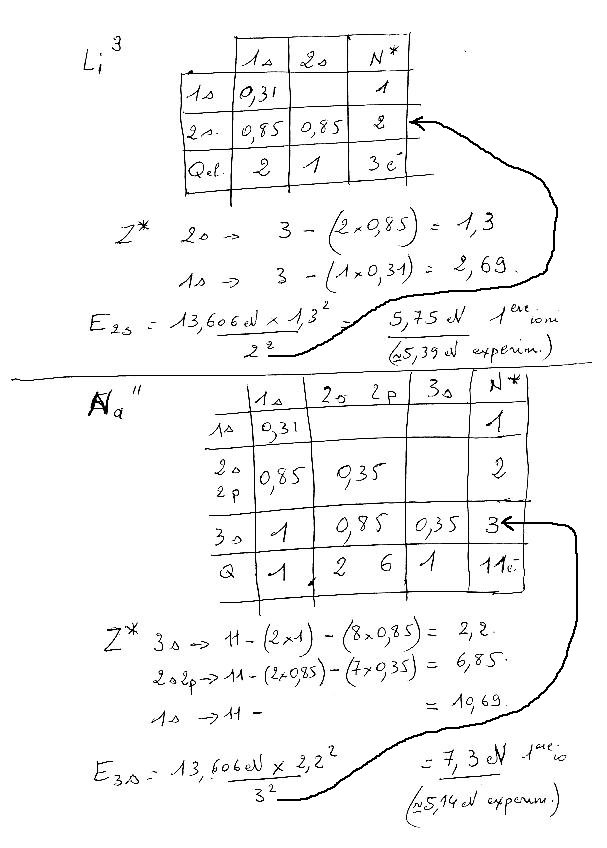 Li 3
1s 2s N*
1s 0,31 1
2s. 0,85 0,85 2
Qel. 2 1 3 e-
Z* 2s → 3 - (2×0,85) = 1,3
1s → 3 - (1×0,31) = 2,69.
E2s = 13,606 eV × 1,3² / 2² = 5,75 eV 1ère ioni
(≈5,39 eV experim.)
Na 11
1s 2s 2p 3s N*
1s 0,31 1
2s 2p 0,85 0,35 2
3s 1 0,85 0,35 3
Q 1 2 6 1 11e-
Z* 3s → 11 - (2×1) - (8×0,85) = 2,2.
2s2p → 11 - (2×0,85) - (7×0,35) = 6,85.
1s → 11 - = 10,69.
E3s = 13,606 eV × 2,2² / 3² = 7,3 eV 1ère io
(≈5,14 eV experim.)